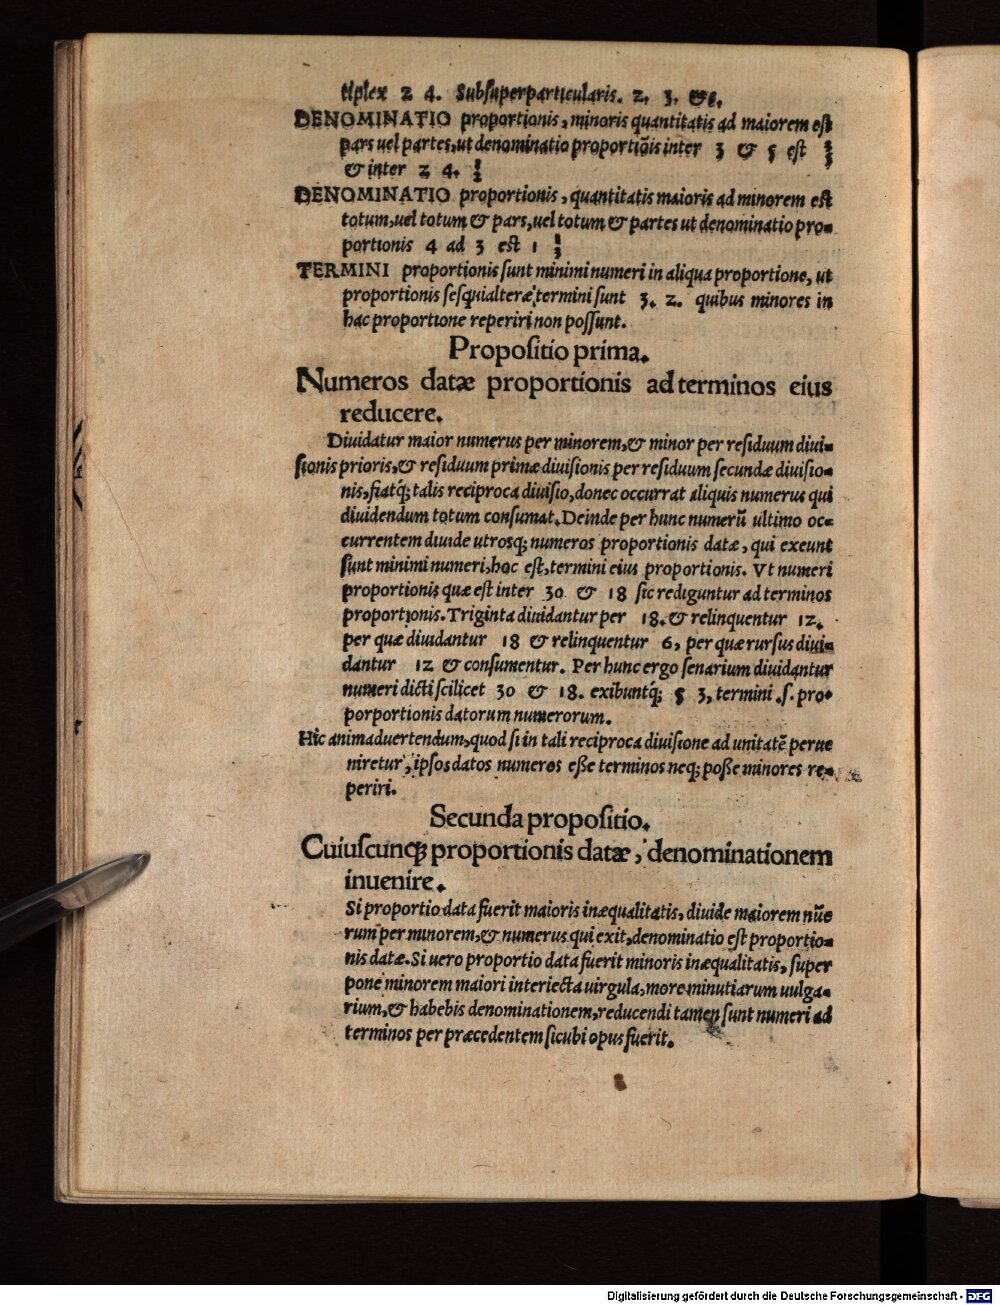 tiplex 2 4. Subsuperparticularis. 2. 3. &6.
DENOMINATIO proportionis, minoris quantitatis ad maiorem est
pars uel partes, ut denominatio proportiōis inter 3 & 5 est 3/5
& inter 2 4. 1/2
DENOMINATIO proportionis, quantitatis maioris ad minorem est
totum, uel totum & pars, uel totum & partes ut denominatio pro-
portionis 4 ad 3 est 1 1/3
TERMINI proportionis sunt minimi numeri in aliqua proportione, ut
proportionis sesquialteræ termini sunt 3. 2. quibus minores in
hac proportione reperiri non possunt.
Propositio prima.
Numeros datæ proportionis ad terminos eius
reducere.
Diuidatur maior numerus per minorem, & minor per residuum diui-
sionis prioris, & residuum primæ diuisionis per residuum secundæ diuisio-
nis, fiatq; talis reciproca diuisio, donec occurrat aliquis numerus qui
diuidendum totum consumat. Deinde per hunc numerū ultimo oc-
currentem diuide utrosq; numeros proportionis datæ, qui exeunt
sunt minimi numeri, hoc est, termini eius proportionis. Vt numeri
proportionis quæ est inter 30 & 18 sic rediguntur ad terminos
proportionis. Triginta diuidantur per 18. & relinquentur 12.
per quæ diuidantur 18 & relinquentur 6, per quæ rursus diui-
dantur 12 & consumentur. Per hunc ergo senarium diuidantur
numeri dicti scilicet 30 & 18. exibuntq; 5 3, termini .s. pro-
porportionis datorum numerorum.
Hic animaduertendum, quod si in tali reciproca diuisione ad unitatē perue
niretur, ipsos datos numeros esse terminos neq; posse minores re-
periri.
Secunda propositio.
Cuiuscunq; proportionis datæ, denominationem
inuenire.
Si proportio data fuerit maioris inæqualitatis, diuide maiorem nūe
rum per minorem, & numerus qui exit, denominatio est proportio-
nis datæ. Si uero proportio data fuerit minoris inæqualitatis, super
pone minorem maiori interiecta uirgula, more minutiarum uulga-
rium, & habebis denominationem, reducendi tamen sunt numeri ad
terminos per præcedentem sicubi opus fuerit.
Digitalisierung gefördert durch die Deutsche Forschungsgemeinschaft - DFG